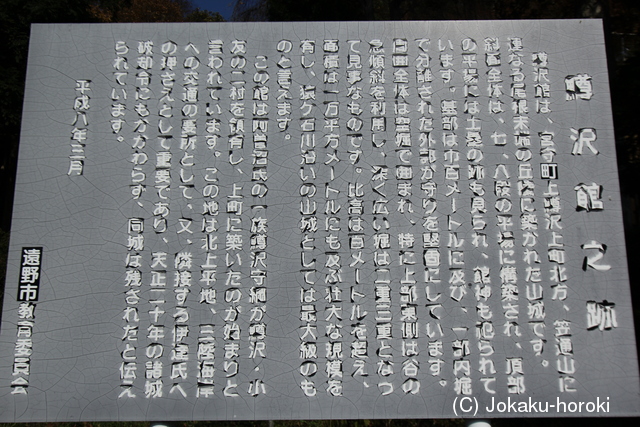 鱒沢館之跡
鱒沢館は、宮守町上鱒沢上町北方、笠通山に
連なる尾根末端の丘陵に築かれた山城です。
斜面全体は、七、八段の平場に構築され、頂部
の平場には土塁の跡も見られ、館神も祀られて
います。基部は巾百メートルに及び、一部内堀
で分離された外郭が守りを堅固にしています。
台面全体は空堀で囲まれ、特に上部東側は谷の
急傾斜を利用し、深く広い堀は二重三重となっ
て見事なものです。比高は百メートルを超え、
面積は一万平方メートルにも及ぶ壮大な規模を
有し、猿ケ石川沿いの山城としては最大級のも
のと言えます。
この館は阿曽沼氏の一族鱒沢守綱が鱒沢・小
友の二村を領有し、上町に築いたのが始まりと
言われています。この地は北上平地、三陸海岸
への交通の要所として、又、隣接する伊達氏へ
の押さえとして重要であり、天正二十年の諸城
破却令にもかかわらず、同城は残されたと伝え
られています。
平成八年三月
遠野市教育委員会
(C) Jokaku-horoki